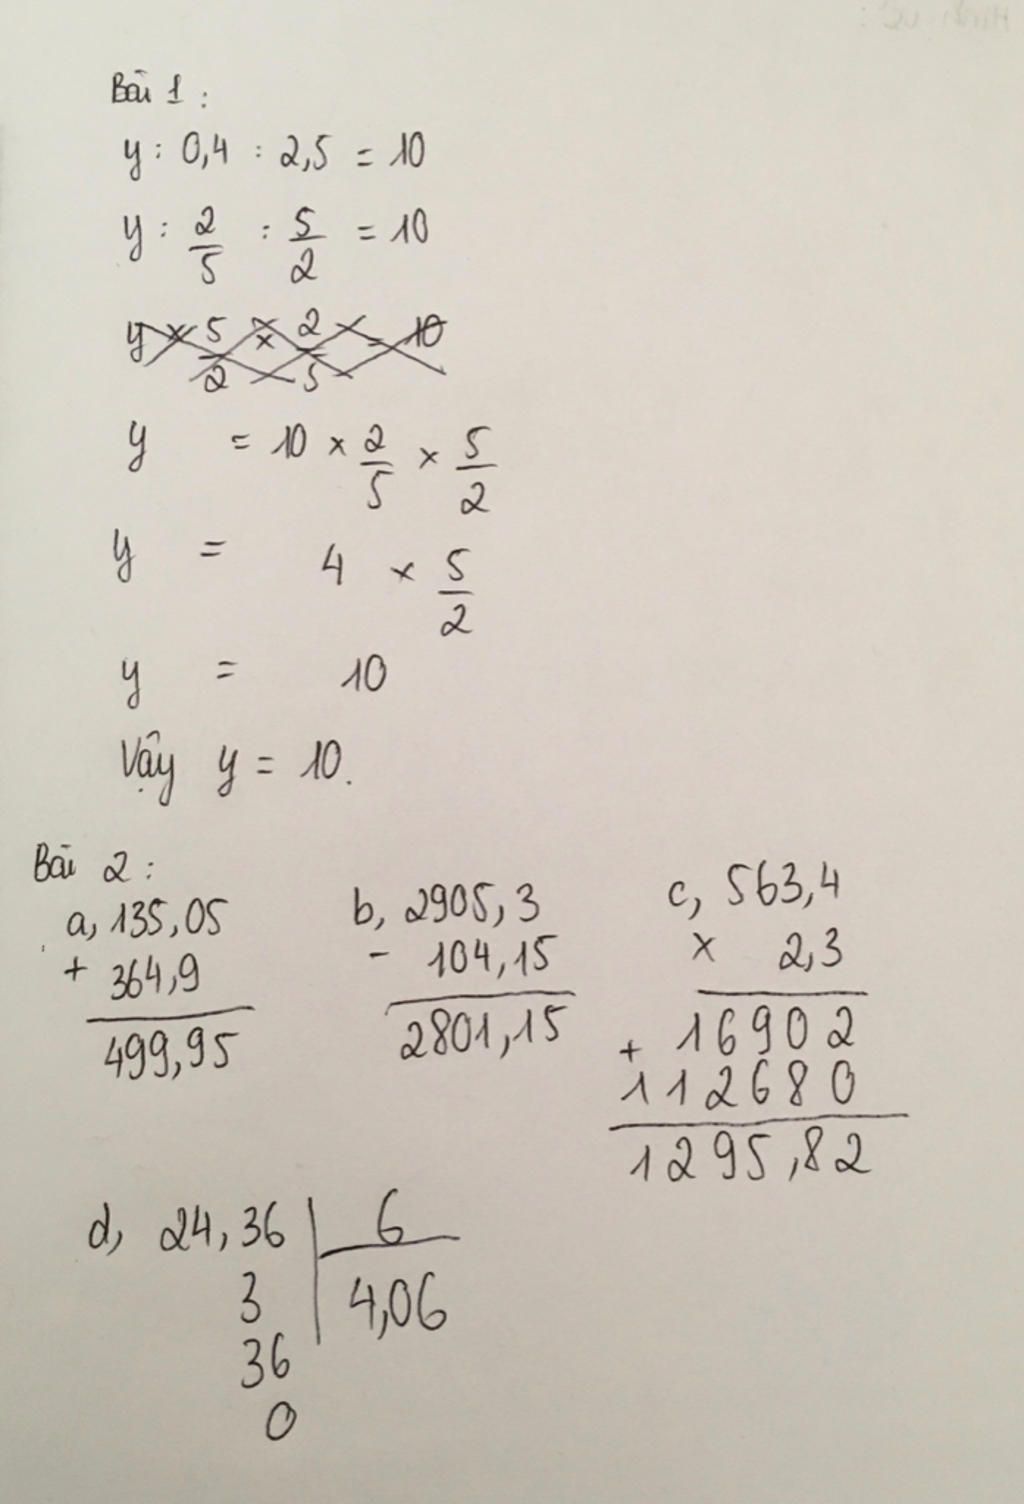 Bài 1:
y : 0,4 : 2,5 = 10
y : 2/5 : 5/2 = 10
y × 5/2 × 2/5 = 10
y = 10 × 2/5 × 5/2
y = 4 × 5/2
y = 10
Vậy y = 10.
Bài 2:
a, 135,05
+ 364,9
499,95
b, 2905,3
- 104,15
2801,15
c, 563,4
× 2,3
16902
+
112680
1295,82
d, 24,36 | 6
3 | 4,06
36
0